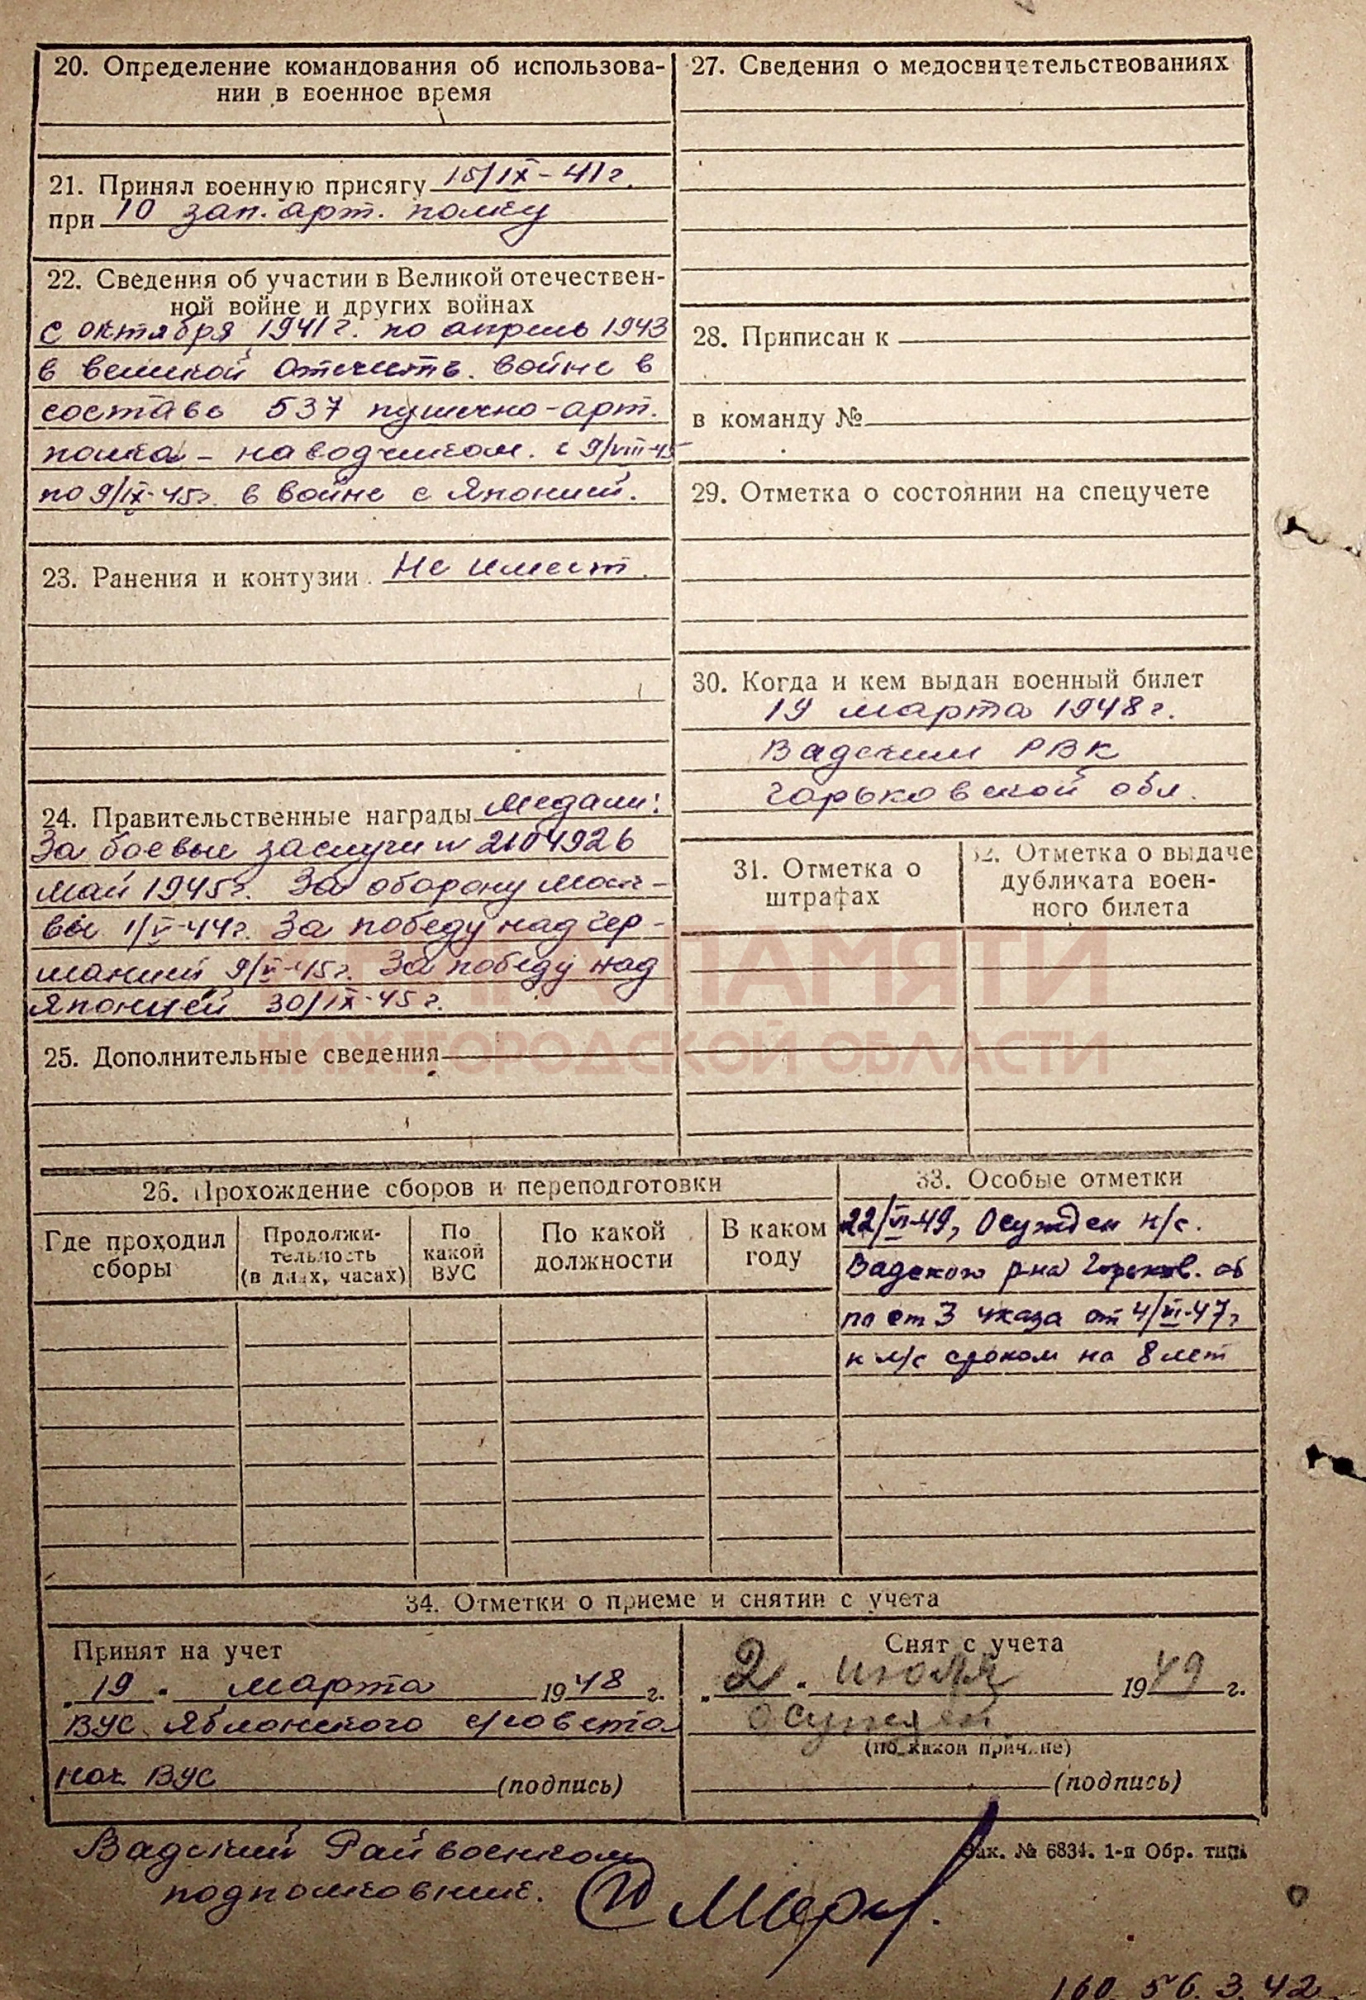 20. Определение командования об использова-
нии в военное время
21. Принял военную присягу 15/IX-41г.
при 10 зап. арт. полку
22. Сведения об участии в Великой отечествен-
ной войне и других войнах
с октября 1941г. по апрель 1943
в великой отечеств. войне в
составе 537 пушечно-арт.
полка - наводчиком. с 9/VIII-45
по 9/IX-45г. в войне с Японией.
23. Ранения и контузии Не имеет.
24. Правительственные награды Медали:
За боевые заслуги № 2104926
май 1945г. За оборону Моск-
вы 1/V-44г. За победу над Гер-
манией 9/V-45г. За победу над
Японией 30/IX-45г.
25. Дополнительные сведения
27. Сведения о медосвидетельствованиях
28. Приписан к
в команду №
29. Отметка о состоянии на спецучете
30. Когда и кем выдан военный билет
19 марта 1948г.
Вадским РВК
Горьковской обл.
31. Отметка о
штрафах
32. Отметка о выдаче
дубликата воен-
ного билета
ПАМЯТИ
НИЖЕГОРОДСКОЙ ОБЛАСТИ
26. Прохождение сборов и переподготовки
Где проходил
сборы
Продолжи-
тельность
(в днях, часах)
По
какой
ВУС
По какой
должности
В каком
году
33. Особые отметки
22/VI-49, Осужден н/с.
Вадского р-на Горьков. об
по ст 3 указа от 4/VI-47г
к л/с сроком на 8 лет
34. Отметки о приеме и снятии с учета
Принят на учет
„19" марта 1948 г.
ВУС Яблонского с/совета
нач ВУС (подпись)
Снят с учета
„2" июля 1949 г.
осужден
(по какой причине)
(подпись)
Зак. № 6834. 1-я Обр. тип.
Вадский Райвоенком
подполковник.
160.56.3.42